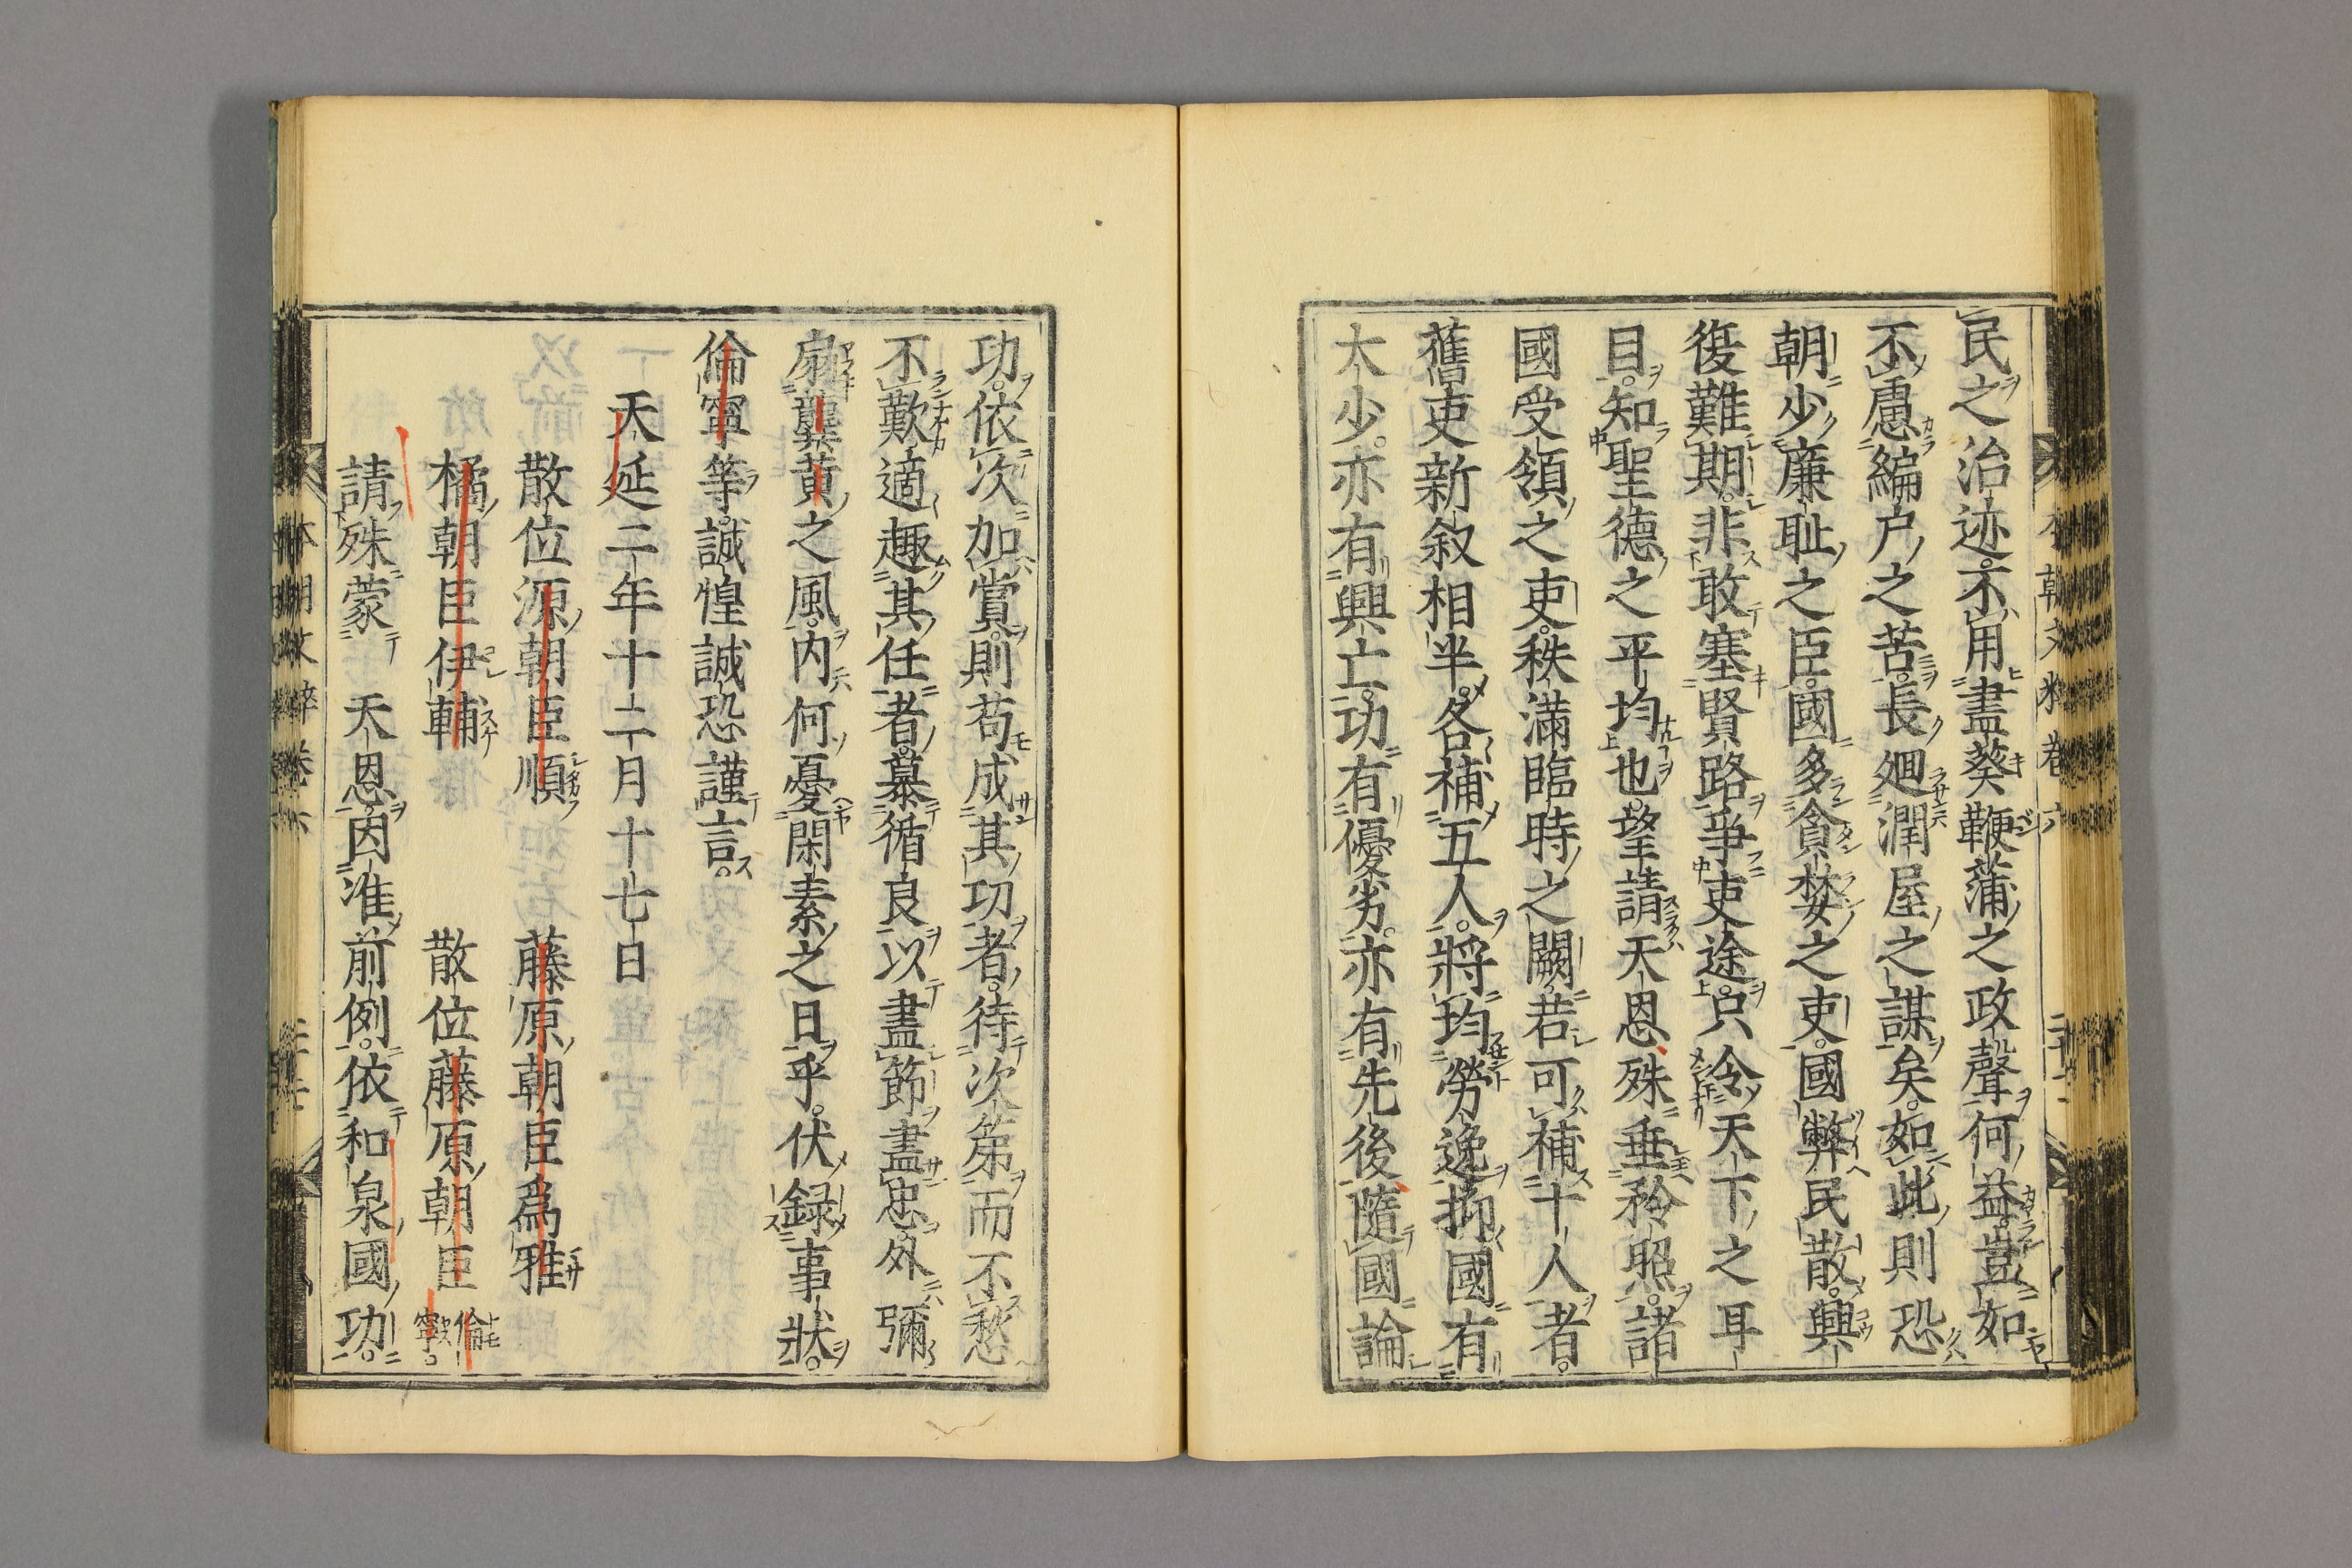 民之治迹。不用盡葵鞭蒲之政聲。何益。豈如
不慮編户之苦。長廻潤屋之謀矣。如此則恐
朝少廉耻之臣。國多貪婪之吏。國弊民散。興
復難期。非敢塞賢路爭吏途。只令天下之耳
目。知聖德之平均也。望請天恩殊垂矜照。諸
國受領之吏。秩滿臨時之闕。若可補十人者。
舊吏新叙相半。各補五人。將均勞逸。抑國有
大少。亦有興亡。功有優劣。亦有先後。隨國論
功。依次加賞。則苟成其功者。待次第而不愁
不歎。適趣其任者。慕循良以盡節盡忠。外彌
扇龔黄之風。内何憂閑素之日乎。伏録事狀。
倫寧等。誠惶誠恐謹言。
天延二年十二月十七日
散位源朝臣順　藤原朝臣爲雅
橘朝臣伊輔　散位藤原朝臣倫寧。
請殊蒙　天恩。因准前例。依和泉國功。
本朝文粹卷六